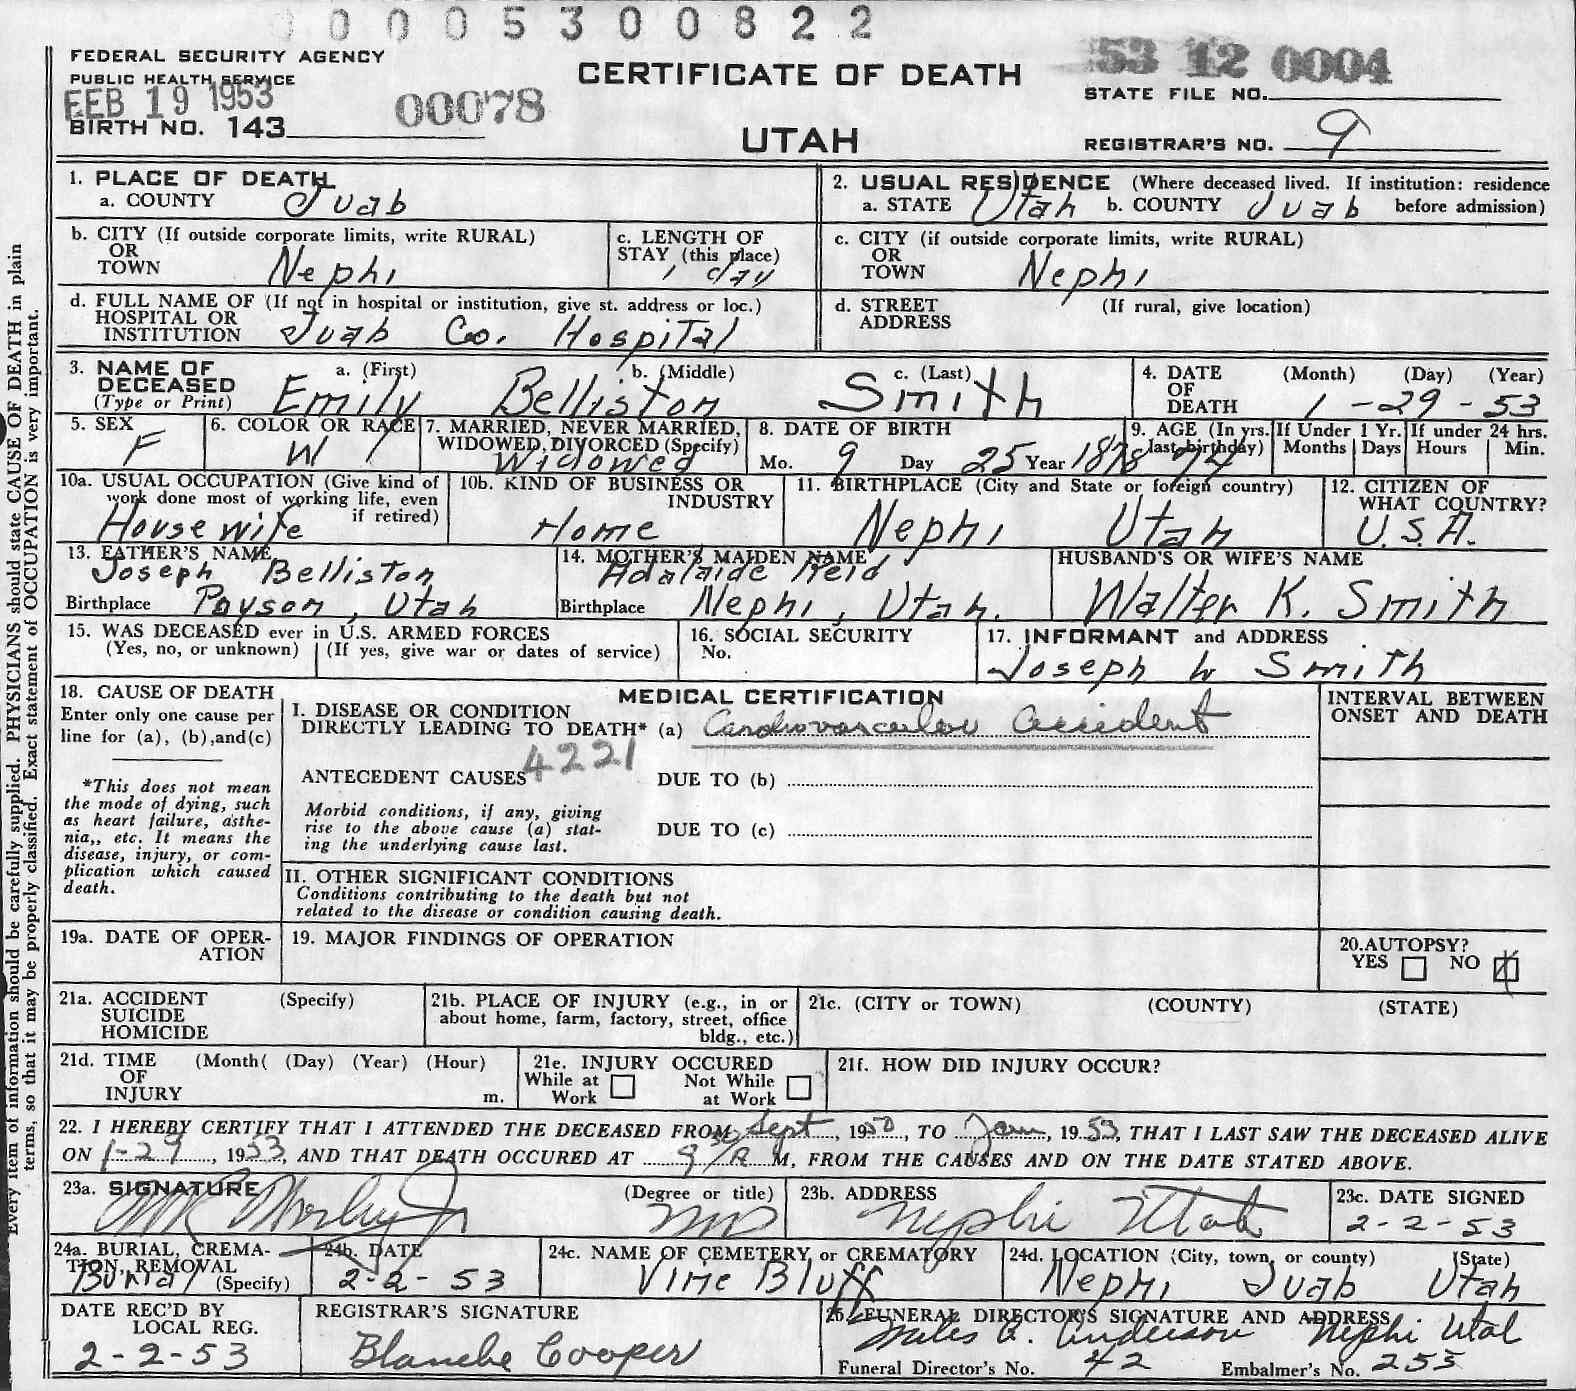 00005300822
FEDERAL SECURITY AGENCY
PUBLIC HEALTH SERVICE
FEB 19 1953
BIRTH NO. 143
00078
CERTIFICATE OF DEATH
UTAH
53 12 0004
STATE FILE NO.
REGISTRAR'S NO. 9
Every item of information should be carefully supplied. PHYSICIANS should state CAUSE OF DEATH in plain
terms, so that it may be properly classified. Exact statement of OCCUPATION is very important.
1. PLACE OF DEATH
a. COUNTY Juab
2. USUAL RESIDENCE (Where deceased lived. If institution: residence
a. STATE Utah b. COUNTY Juab before admission)
b. CITY (If outside corporate limits, write RURAL)
OR
TOWN Nephi
c. LENGTH OF
STAY (this place)
1 day
c. CITY (if outside corporate limits, write RURAL)
OR
TOWN Nephi
d. FULL NAME OF (If not in hospital or institution, give st. address or loc.)
HOSPITAL OR
INSTITUTION Juab Co. Hospital
d. STREET (If rural, give location)
ADDRESS
3. NAME OF
DECEASED
(Type or Print)
a. (First) b. (Middle) c. (Last)
Emily Belliston Smith
4. DATE (Month) (Day) (Year)
OF
DEATH 1-29-53
5. SEX
F
6. COLOR OR RACE
W
7. MARRIED, NEVER MARRIED,
WIDOWED, DIVORCED (Specify)
Widowed
8. DATE OF BIRTH
Mo. 9 Day 25 Year 1878
9. AGE (In yrs.
last birthday)
74
If Under 1 Yr.
Months Days
If under 24 hrs.
Hours Min.
10a. USUAL OCCUPATION (Give kind of
work done most of working life, even
if retired)
Housewife
10b. KIND OF BUSINESS OR
INDUSTRY
Home
11. BIRTHPLACE (City and State or foreign country)
Nephi Utah
12. CITIZEN OF
WHAT COUNTRY?
U.S.A.
13. FATHER'S NAME
Joseph Belliston
Birthplace Payson, Utah
14. MOTHER'S MAIDEN NAME
Adalaide Reid
Birthplace Nephi, Utah.
HUSBAND'S OR WIFE'S NAME
Walter K. Smith
15. WAS DECEASED ever in U.S. ARMED FORCES
(Yes, no, or unknown) (If yes, give war or dates of service)
16. SOCIAL SECURITY
No.
17. INFORMANT and ADDRESS
Joseph W Smith
18. CAUSE OF DEATH
Enter only one cause per
line for (a), (b),and(c)
*This does not mean
the mode of dying, such
as heart failure, asthe-
nia,, etc. It means the
disease, injury, or com-
plication which caused
death.
MEDICAL CERTIFICATION
I. DISEASE OR CONDITION
DIRECTLY LEADING TO DEATH* (a) Cardiovascular Accident
4221
ANTECEDENT CAUSES DUE TO (b)
Morbid conditions, if any, giving
rise to the above cause (a) stat-
ing the underlying cause last.
DUE TO (c)
II. OTHER SIGNIFICANT CONDITIONS
Conditions contributing to the death but not
related to the disease or condition causing death.
INTERVAL BETWEEN
ONSET AND DEATH
19a. DATE OF OPER-
ATION
19. MAJOR FINDINGS OF OPERATION
20.AUTOPSY?
YES NO
21a. ACCIDENT (Specify)
SUICIDE
HOMICIDE
21b. PLACE OF INJURY (e.g., in or
about home, farm, factory, street, office
bldg., etc.)
21c. (CITY or TOWN) (COUNTY) (STATE)
21d. TIME (Month( (Day) (Year) (Hour)
OF
INJURY m.
21e. INJURY OCCURED
While at Not While
Work at Work
21f. HOW DID INJURY OCCUR?
22. I HEREBY CERTIFY THAT I ATTENDED THE DECEASED FROM Sept, 1950, TO Jan, 1953, THAT I LAST SAW THE DECEASED ALIVE
ON 1-29, 1953, AND THAT DEATH OCCURED AT 9 A M, FROM THE CAUSES AND ON THE DATE STATED ABOVE.
23a. SIGNATURE (Degree or title)
MD
23b. ADDRESS
Nephi Utah
23c. DATE SIGNED
2-2-53
24a. BURIAL, CREMA-
TION, REMOVAL
Burial (Specify)
24b. DATE
2-2-53
24c. NAME OF CEMETERY or CREMATORY
Vine Bluff
24d. LOCATION (City, town, or county) (State)
Nephi Juab Utah
DATE REC'D BY
LOCAL REG.
2-2-53
REGISTRAR'S SIGNATURE
Blanche Cooper
25. FUNERAL DIRECTOR'S SIGNATURE AND ADDRESS
Miles G. Anderson Nephi Utah
Funeral Director's No. 42 Embalmer's No. 255